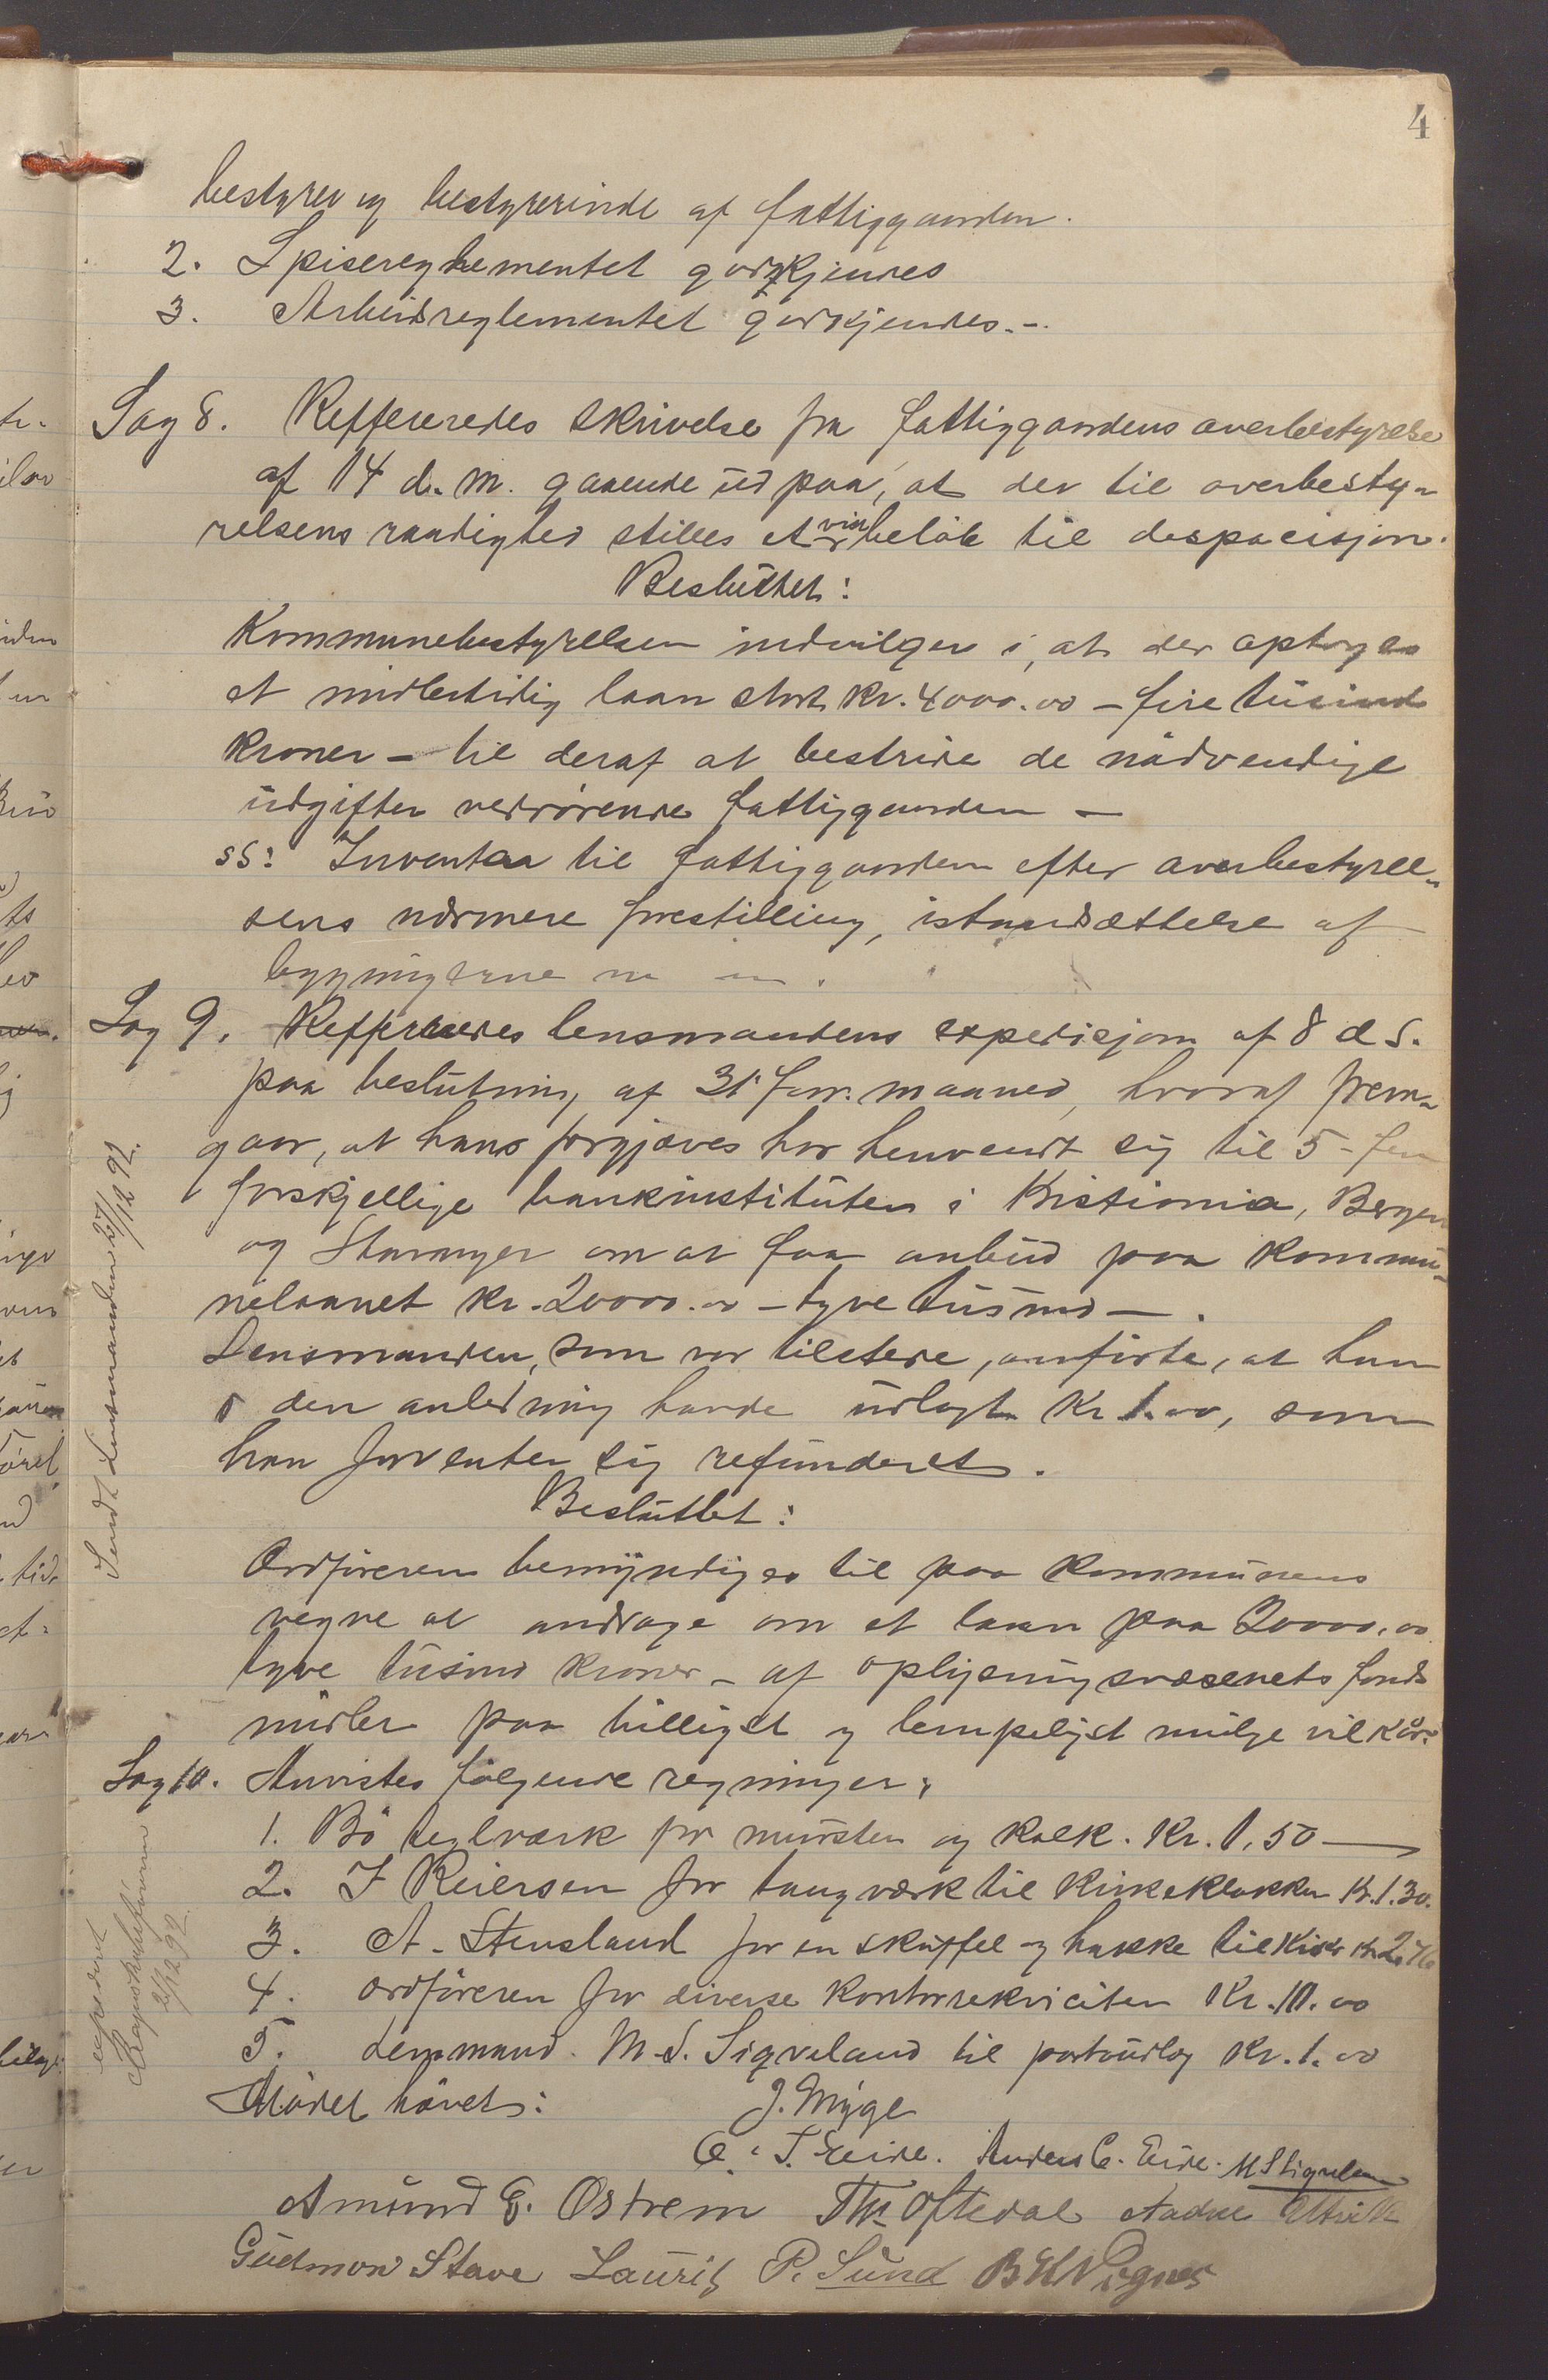 4
bestyrer og bestyrerinde af fattiggaarden.
2. Spisereglementet godkjendes
3. Arbeidsreglementet godkjendes.-
Sag 8. Reffereredes skrivelse fra fattiggaardens overbestyrelse
af 14 d.m. gaaende ud paa, at der til overbesty-
relsens raadighed stilles et vist beløb til despocisjon.
Besluttet:
Kommunebestyrelsen indvilger i, at der optages
et midlertidig laan stort Kr. 4000.00 - fire tusind
kroner - til deraf at bestride de nødvendige
udgifter vedrørende fattiggaarden -
ss: Inventar til fattiggaarden efter overbestyrel-
sens nærmere forestilling, istandsættelse af
bygningerne m m.
Sag 9. Reffereredes lensmandens expedisjon af 8 d.s.
paa beslutning af 31 forr. maaned, hvoraf frem-
gaar, at hans forgjæves har henvendt sig til 5 - fem
forskjellige bankinstituter i Kristiania, Bergen
og Stavanger om at faa anbud paa kommu-
nelaanet kr. 20000.00 - tyve tusind - .
Lensmanden, som var tilstede, anførte, at han
i den anledning havde udlagt Kr 1.00, som
han forventer sig refunderet.
Besluttet:
Ordføreren bemyndiges til paa kommunens
vegne at andrage om et laan paa 20000.00
tyve tusind kroner - af oplysningsvæsenets fonds
midler paa billigst og lempeligst mulige vilkår.
Sag 10. Anvistes følgende regninger:
1. Bø teglværk for mursten og kalk. Kr. 1,50 -
2. I Reiersen for taugværk til kirkeklokken Kr. 1.30.
3. A. Stensland for en skuffel og hakke til Kirk Kr 2.
4. ordføreren for diverse kontorrekvisiter Kr. 10.00
5. lensmand. M. S. Sigveland til portoudlæg Kr. 1.00
Mødet hævet: J. Myge
O. T. Eide. Anders C. Eide. M S Sigveland
Amund G. Østrem Th. Oftedal Aadne
Gudmon Stave Lauritz P. Sund
Sendt Lensmanden 27/12 92.
expederet
2/12 92.